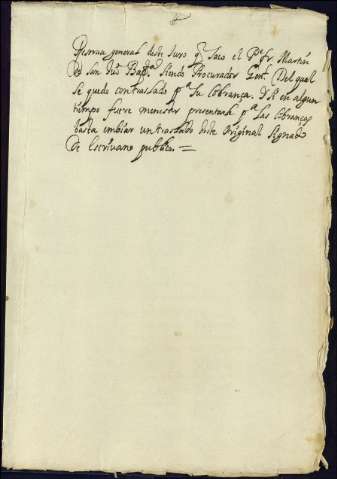 Reserva general deste Juro q̃ saco el Pe fr. Martin
de san Juº Bapta siendo Procurador Genl. Del qual
se quedo con traslado pª su Cobrança. Y si en algun
tiempo fuere menester presentarse pª las Cobranças
basta imbiar un traslado deste Original signado
De escrivano publico. =